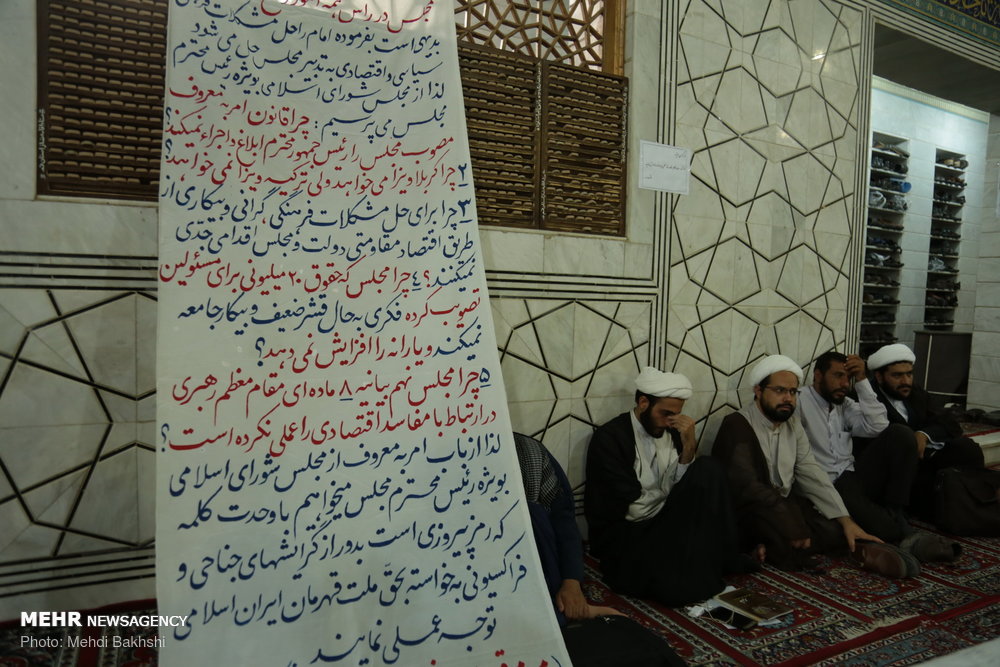 مجلس در راس همه امور
بدیهی است بفرموده امام راحل مشکلات فرهنگی
سیاسی و اقتصادی به تدبیر مجلس حل می شود
لذا از مجلس شورای اسلامی بویژه رئیس محترم
مجلس می پرسیم: چرا قانون امر به معروف
مصوب مجلس را رئیس جمهور محترم ابلاغ و اجراء نمیکند؟
۲ چرا کربلا ویزا می خواهد ولی ترکیه ویزا نمی خواهد؟
۳ چرا برای حل مشکلات فرهنگی گرانی و بیکاری از
طریق اقتصاد مقاومتی دولت و مجلس اقدامی جدی
نمیکنند؟ ٤ چرا مجلس که حقوق ۲۰ میلیونی برای مسئولین
تصویب کرده فکری به حال قشر ضعیف و بیکار جامعه
نمیکند و یارانه را افزایش نمی دهد؟
۵ چرا مجلس نهم بیانیه ۸ ماده ای مقام معظم رهبری
در ارتباط با مفاسد اقتصادی را عملی نکرده است؟
لذا از باب امر به معروف از مجلس شورای اسلامی
بویژه رئیس محترم مجلس میخواهیم با وحدت کلمه
که رمز پیروزی است بدور از گرایشهای جناحی و
فراکسیونی به خواسته بحق ملت قهرمان ایران اسلامی
توجه عملی نمایند
MEHR NEWSAGENCY
Photo: Mehdi Bakhshi